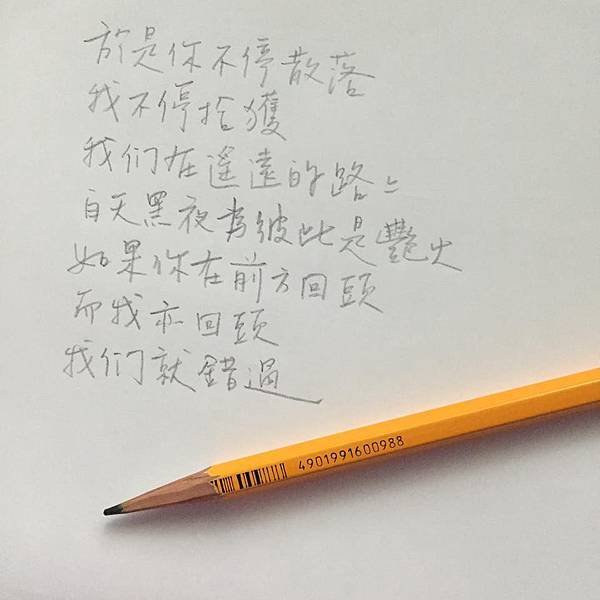 於是你不停散落
我不停拾獲
我们在遙遠的路上
白天黑夜為彼此是艷火
如果你在前方回頭
而我亦回頭
我们就錯過
4901991600988